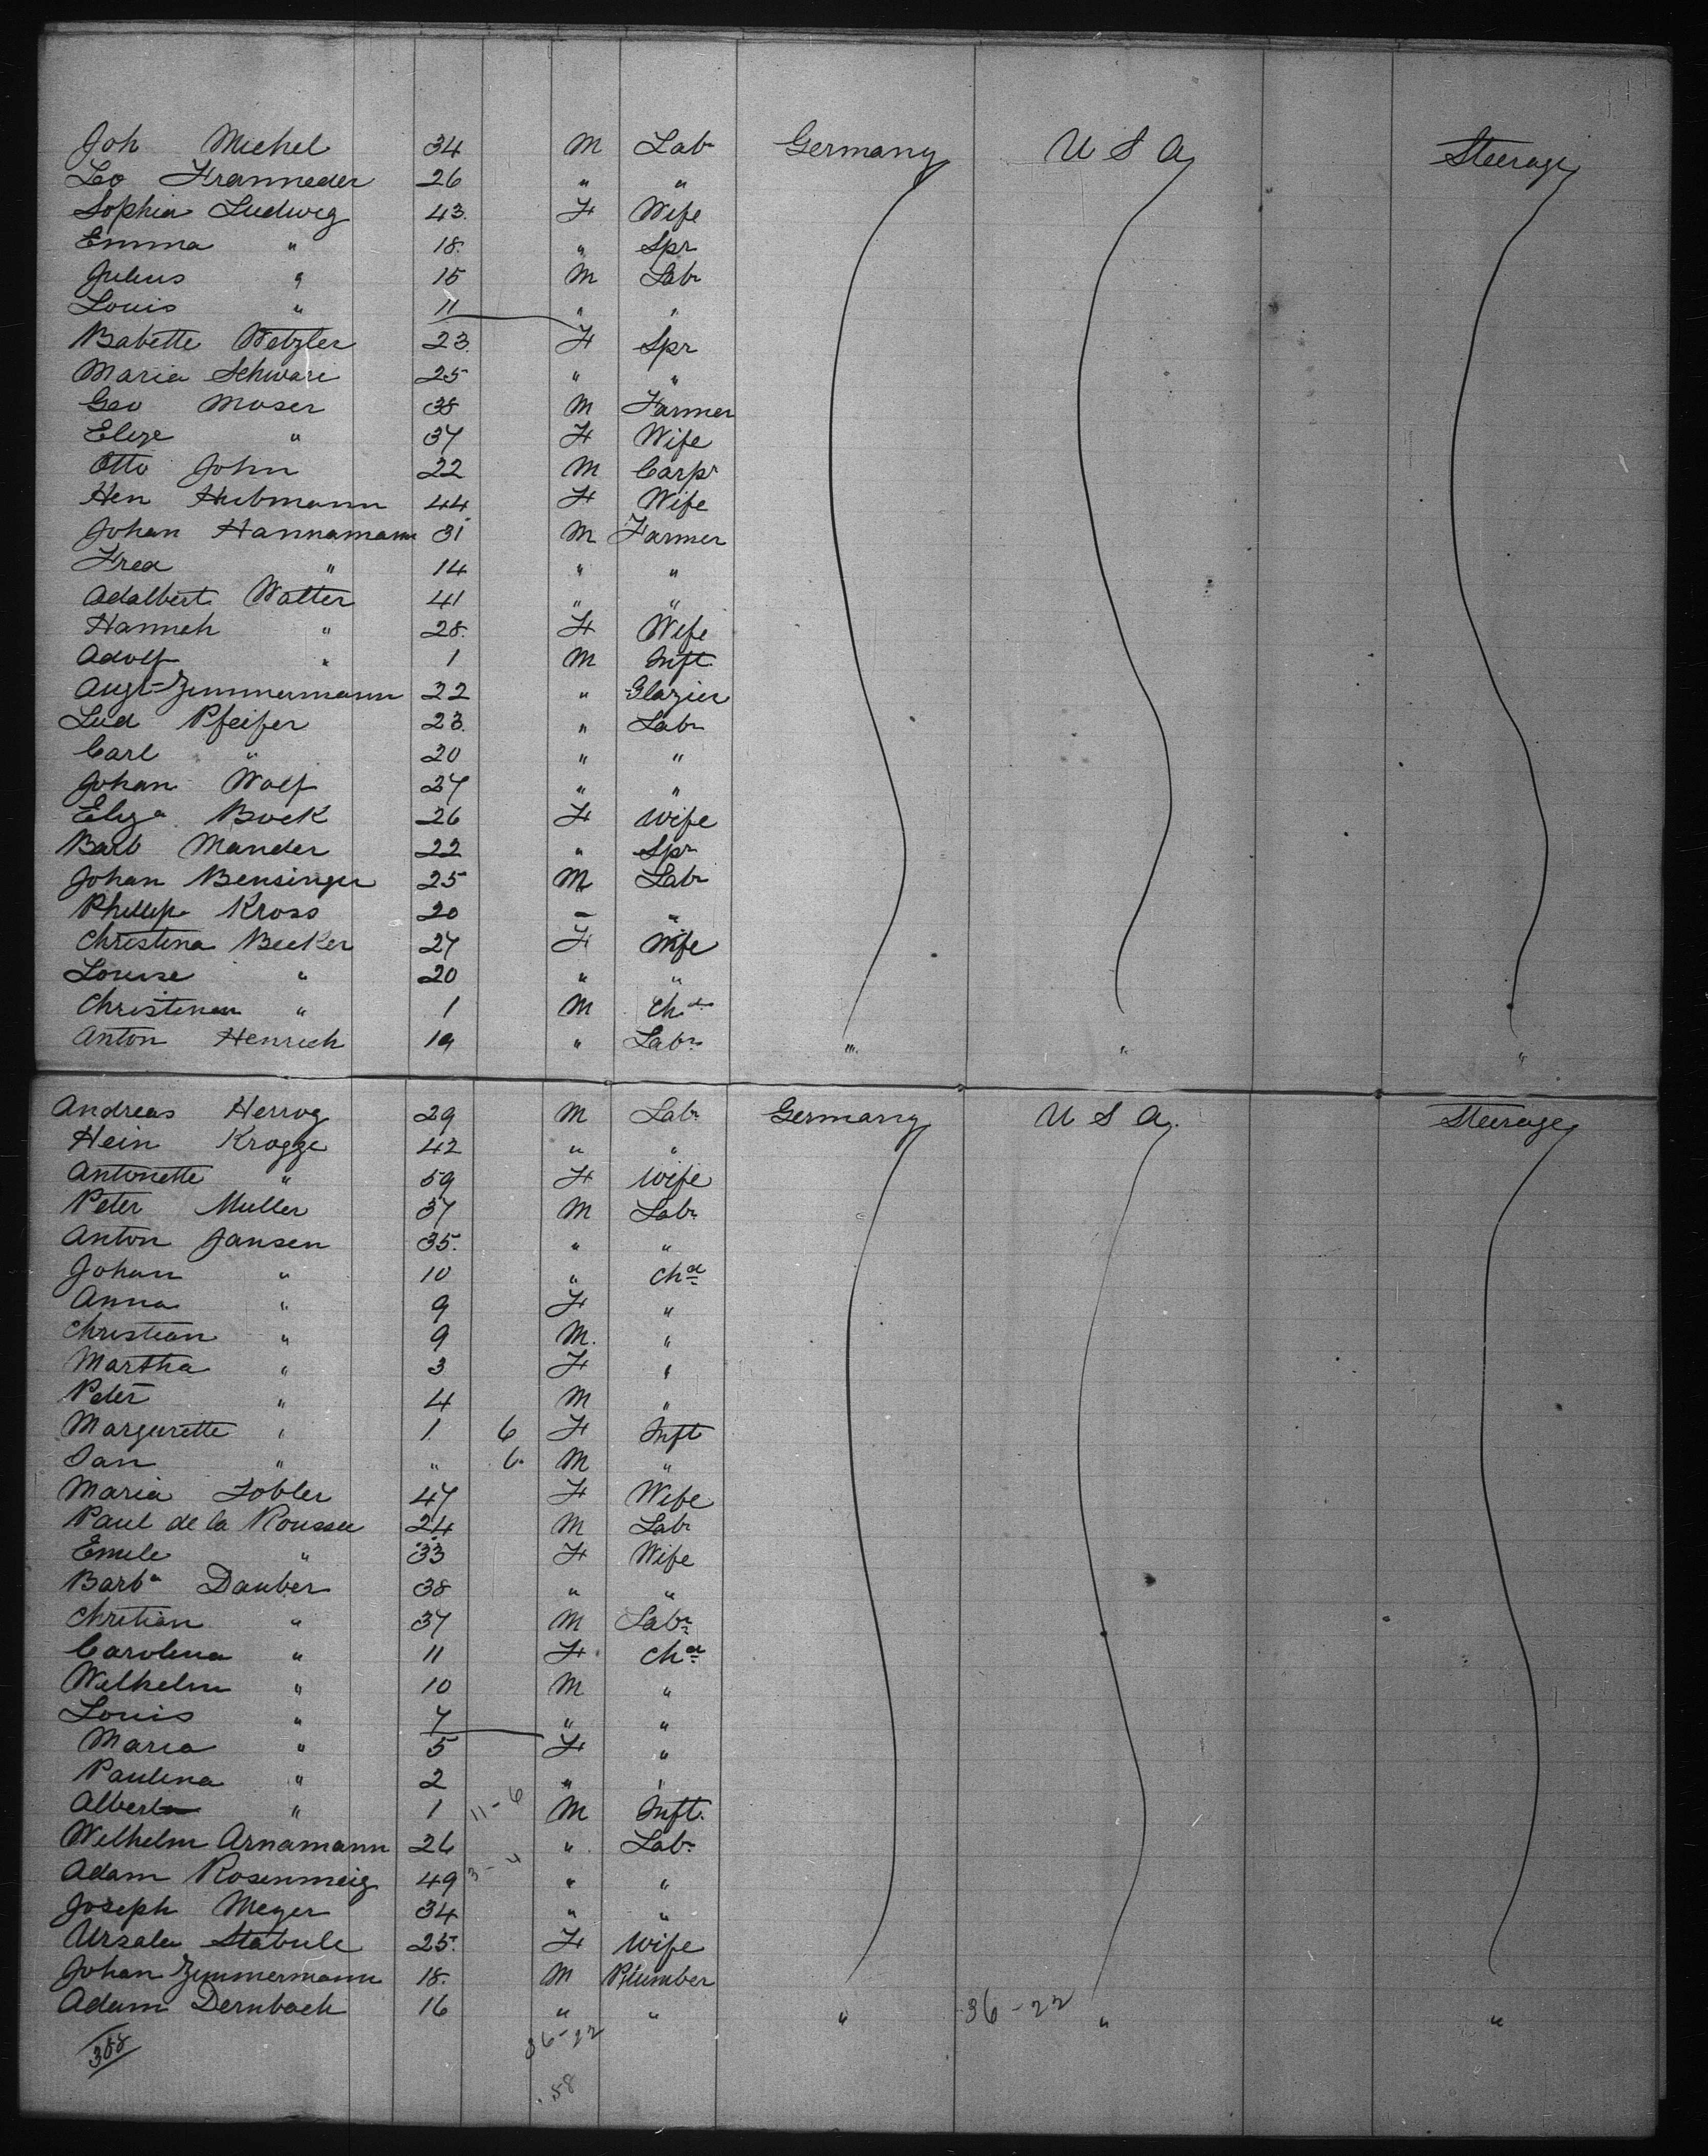 Joh Michel 34 M Lab Germany U S A Steerage
Leo Franneder 26 " "
Sophia Ludwig 43 F Wife
Emma " 18 " Spr
Julius " 15 M Lab
Louis " 11 " "
Babette Wetzler 23 F Spr
Maria Schware 25 " "
Geo Moser 38 M Farmer
Elize " 37 F Wife
Otto John 22 M Carpr
Hen Hubmann 44 F Wife
Johan Hannamann 31 M Farmer
Fred " 14 " "
Adalbert Walter 41 " "
Hannah " 28 F Wife
Adolf " 1 M Inft
Augt Zimmermann 22 " Glazier
Lud Pfeifer 23 " Labr
Carl " 20 " "
Johan Wolf 27 " "
Eliza Bock 26 F Wife
Barb Mander 22 " Spr
Johan Bensinger 25 M Labr
Phillip Kross 20 " "
Christina Becker 27 F Wife
Louise " 20 " "
Christinan " 1 M Chd
Anton Henrich 19 " Labr " " "
Andreas Herrog 29 M Labr Germany U S A. Steerage
Hein Krogge 42 " "
Antonette " 59 F Wife
Peter Muller 37 M Labr
Anton Jansen 35 " "
Johan " 10 " Chd
Anna " 9 F "
Christian " 9 M "
Martha " 3 F "
Peter " 4 M "
Margurette " 1 6 F Inft
Jan " " 6 M "
Maria Tobler 47 F Wife
Paul de la Roussee 24 M Labr
Emile " 33 F Wife
Barba Dauber 38 " "
Chritian " 37 M Labr
Carolina " 11 F Chd
Wilhelm " 10 M "
Louis " 7 " "
Maria " 5 F "
Paulina " 2 " "
Albert " 1 11-6 M Inft.
Wilhelm Arnamann 26 " Labr
Adam Rosenmeig 49 3-4 " "
Joseph Meyer 34 " "
Ursala Stabule 25 F Wife
Johan Zimmermann 18 M Plumber
Adam Dernbach 16 " " " 36-22 " "
388 36-22
58